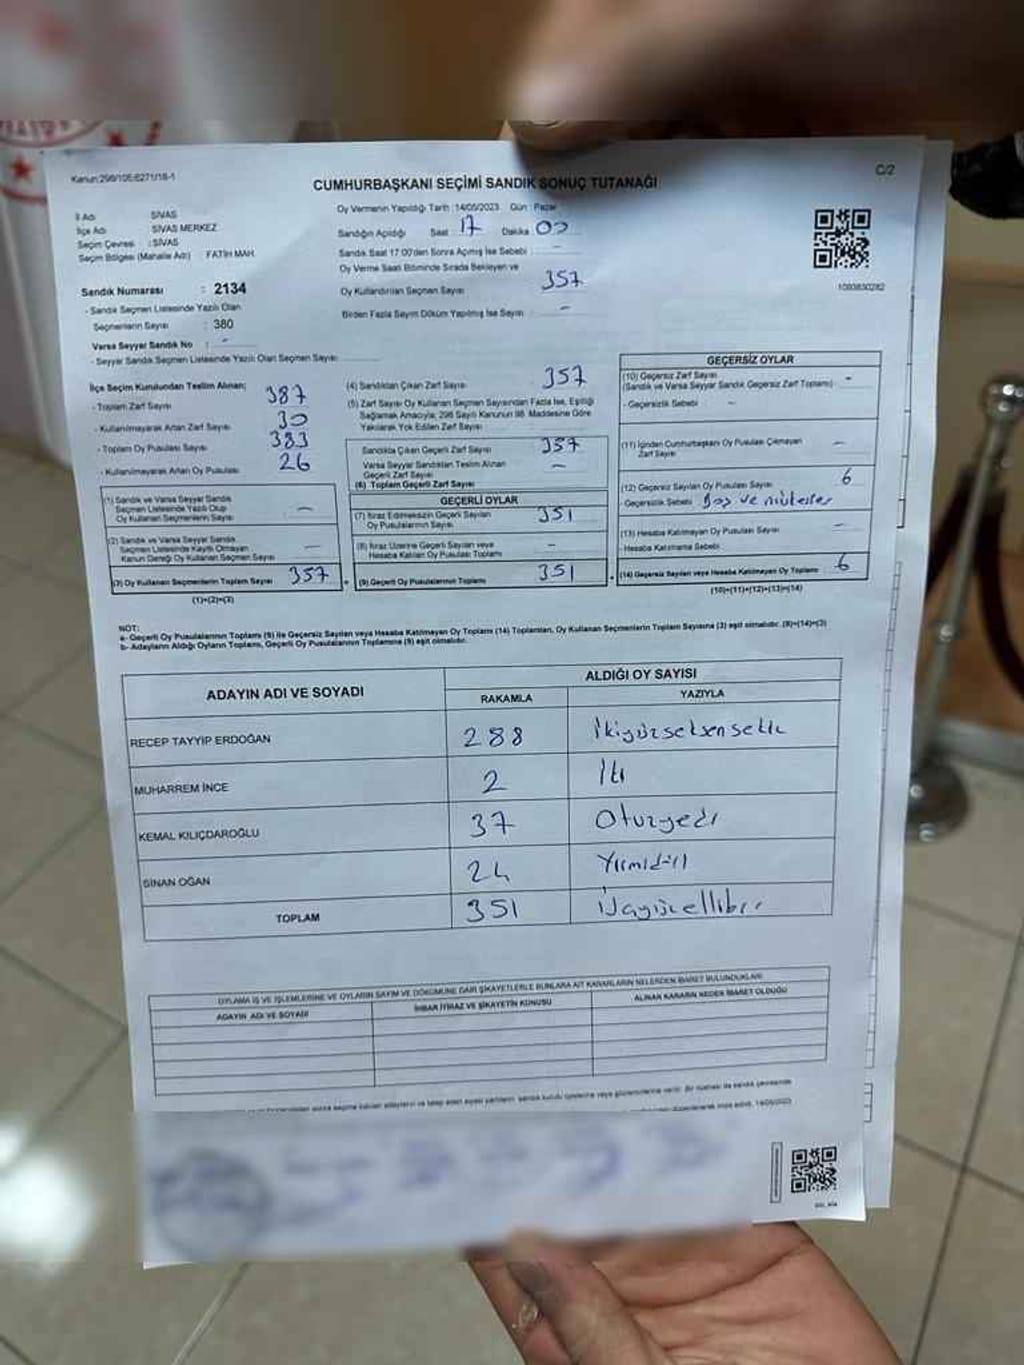 Kanun:298/105-6271/18-1
C/2
CUMHURBAŞKANI SEÇİMİ SANDIK SONUÇ TUTANAĞI
İl Adı SİVAS
İlçe Adı SİVAS MERKEZ
Seçim Çevresi : SİVAS
Seçim Bölgesi (Mahalle Adı) FATİH MAH.
Oy Vermenin Yapıldığı Tarih : 14/05/2023 Gün : Pazar
Sandığın Açıldığı Saat 17 Dakika 00
Sandık Saat 17:00'den Sonra Açılmış İse Sebebi : -
Oy Verme Saati Bitiminde Sırada Bekleyen ve
Oy Kullandırılan Seçmen Sayısı 357
Birden Fazla Sayım Döküm Yapılmış İse Sayısı : -
1093830282
Sandık Numarası : 2134
- Sandık Seçmen Listesinde Yazılı Olan
Seçmenlerin Sayısı : 380
Varsa Seyyar Sandık No : -
- Seyyar Sandık Seçmen Listesinde Yazılı Olan Seçmen Sayısı
İlçe Seçim Kurulundan Teslim Alınan;
- Toplam Zarf Sayısı 387
- Kullanılmayarak Artan Zarf Sayısı 30
- Toplam Oy Pusulası Sayısı 383
- Kullanılmayarak Artan Oy Pusulası 26
(1) Sandık ve Varsa Seyyar Sandık
Seçmen Listesinde Yazılı Olup
Oy Kullanan Seçmenlerin Sayısı -
(2) Sandık ve Varsa Seyyar Sandık
Seçmen Listesinde Kayıtlı Olmayan
Kanun Gereği Oy Kullanan Seçmen Sayısı -
(3) Oy Kullanan Seçmenlerin Toplam Sayısı 357
(1)+(2)=(3)
(4) Sandıktan Çıkan Zarf Sayısı 357
(5) Zarf Sayısı Oy Kullanan Seçmen Sayısından Fazla İse, Eşitliği
Sağlamak Amacıyla; 298 Sayılı Kanunun 98. Maddesine Göre
Yakılarak Yok Edilen Zarf Sayısı
Sandıkta Çıkan Geçerli Zarf Sayısı 357
Varsa Seyyar Sandıktan Teslim Alınan
Geçerli Zarf Sayısı -
(6) Toplam Geçerli Zarf Sayısı
GEÇERLİ OYLAR
(7) İtiraz Edilmeksizin Geçerli Sayılan
Oy Pusulalarının Sayısı 351
(8) İtiraz Üzerine Geçerli Sayılan veya
Hesaba Katılan Oy Pusulası Toplamı -
(9) Geçerli Oy Pusulalarının Toplamı 351
GEÇERSİZ OYLAR
(10) Geçersiz Zarf Sayısı -
(Sandık ve Varsa Seyyar Sandık Geçersiz Zarf Toplamı)
- Geçersizlik Sebebi -
(11) İçinden Cumhurbaşkanı Oy Pusulası Çıkmayan
Zarf Sayısı -
(12) Geçersiz Sayılan Oy Pusulası Sayısı 6
- Geçersizlik Sebebi Boş ve
(13) Hesaba Katılmayan Oy Pusulası Sayısı -
- Hesaba Katılmama Sebebi
(14) Geçersiz Sayılan veya Hesaba Katılmayan Oy Toplamı 6
(10)+(11)+(12)+(13)=(14)
NOT:
a- Geçerli Oy Pusulalarının Toplamı (9) ile Geçersiz Sayılan veya Hesaba Katılmayan Oy Toplamı (14) Toplamları, Oy Kullanan Seçmenlerin Toplam Sayısına (3) eşit olmalıdır. (9)+(14)=(3)
b- Adayların Aldığı Oyların Toplamı, Geçerli Oy Pusulalarının Toplamına (9) eşit olmalıdır.
ADAYIN ADI VE SOYADI ALDIĞI OY SAYISI
RAKAMLA YAZIYLA
RECEP TAYYİP ERDOĞAN 288 İkiyüzseksensekiz
MUHARREM İNCE 2 İki
KEMAL KILIÇDAROĞLU 37 Otuzyedi
SİNAN OĞAN 24 Yirmidört
TOPLAM 351 Üçyüzellibir
OYLAMA İŞ VE İŞLEMLERİNE VE OYLARIN SAYIM VE DÖKÜMÜNE DAİR ŞİKAYETLERLE BUNLARA AİT KARARLARIN NELERDEN İBARET BULUNDUKLARI
ADAYIN ADI VE SOYADI İHBAR İTİRAZ VE ŞİKAYETİN KONUSU ALINAN KARARIN NEDEN İBARET OLDUĞU